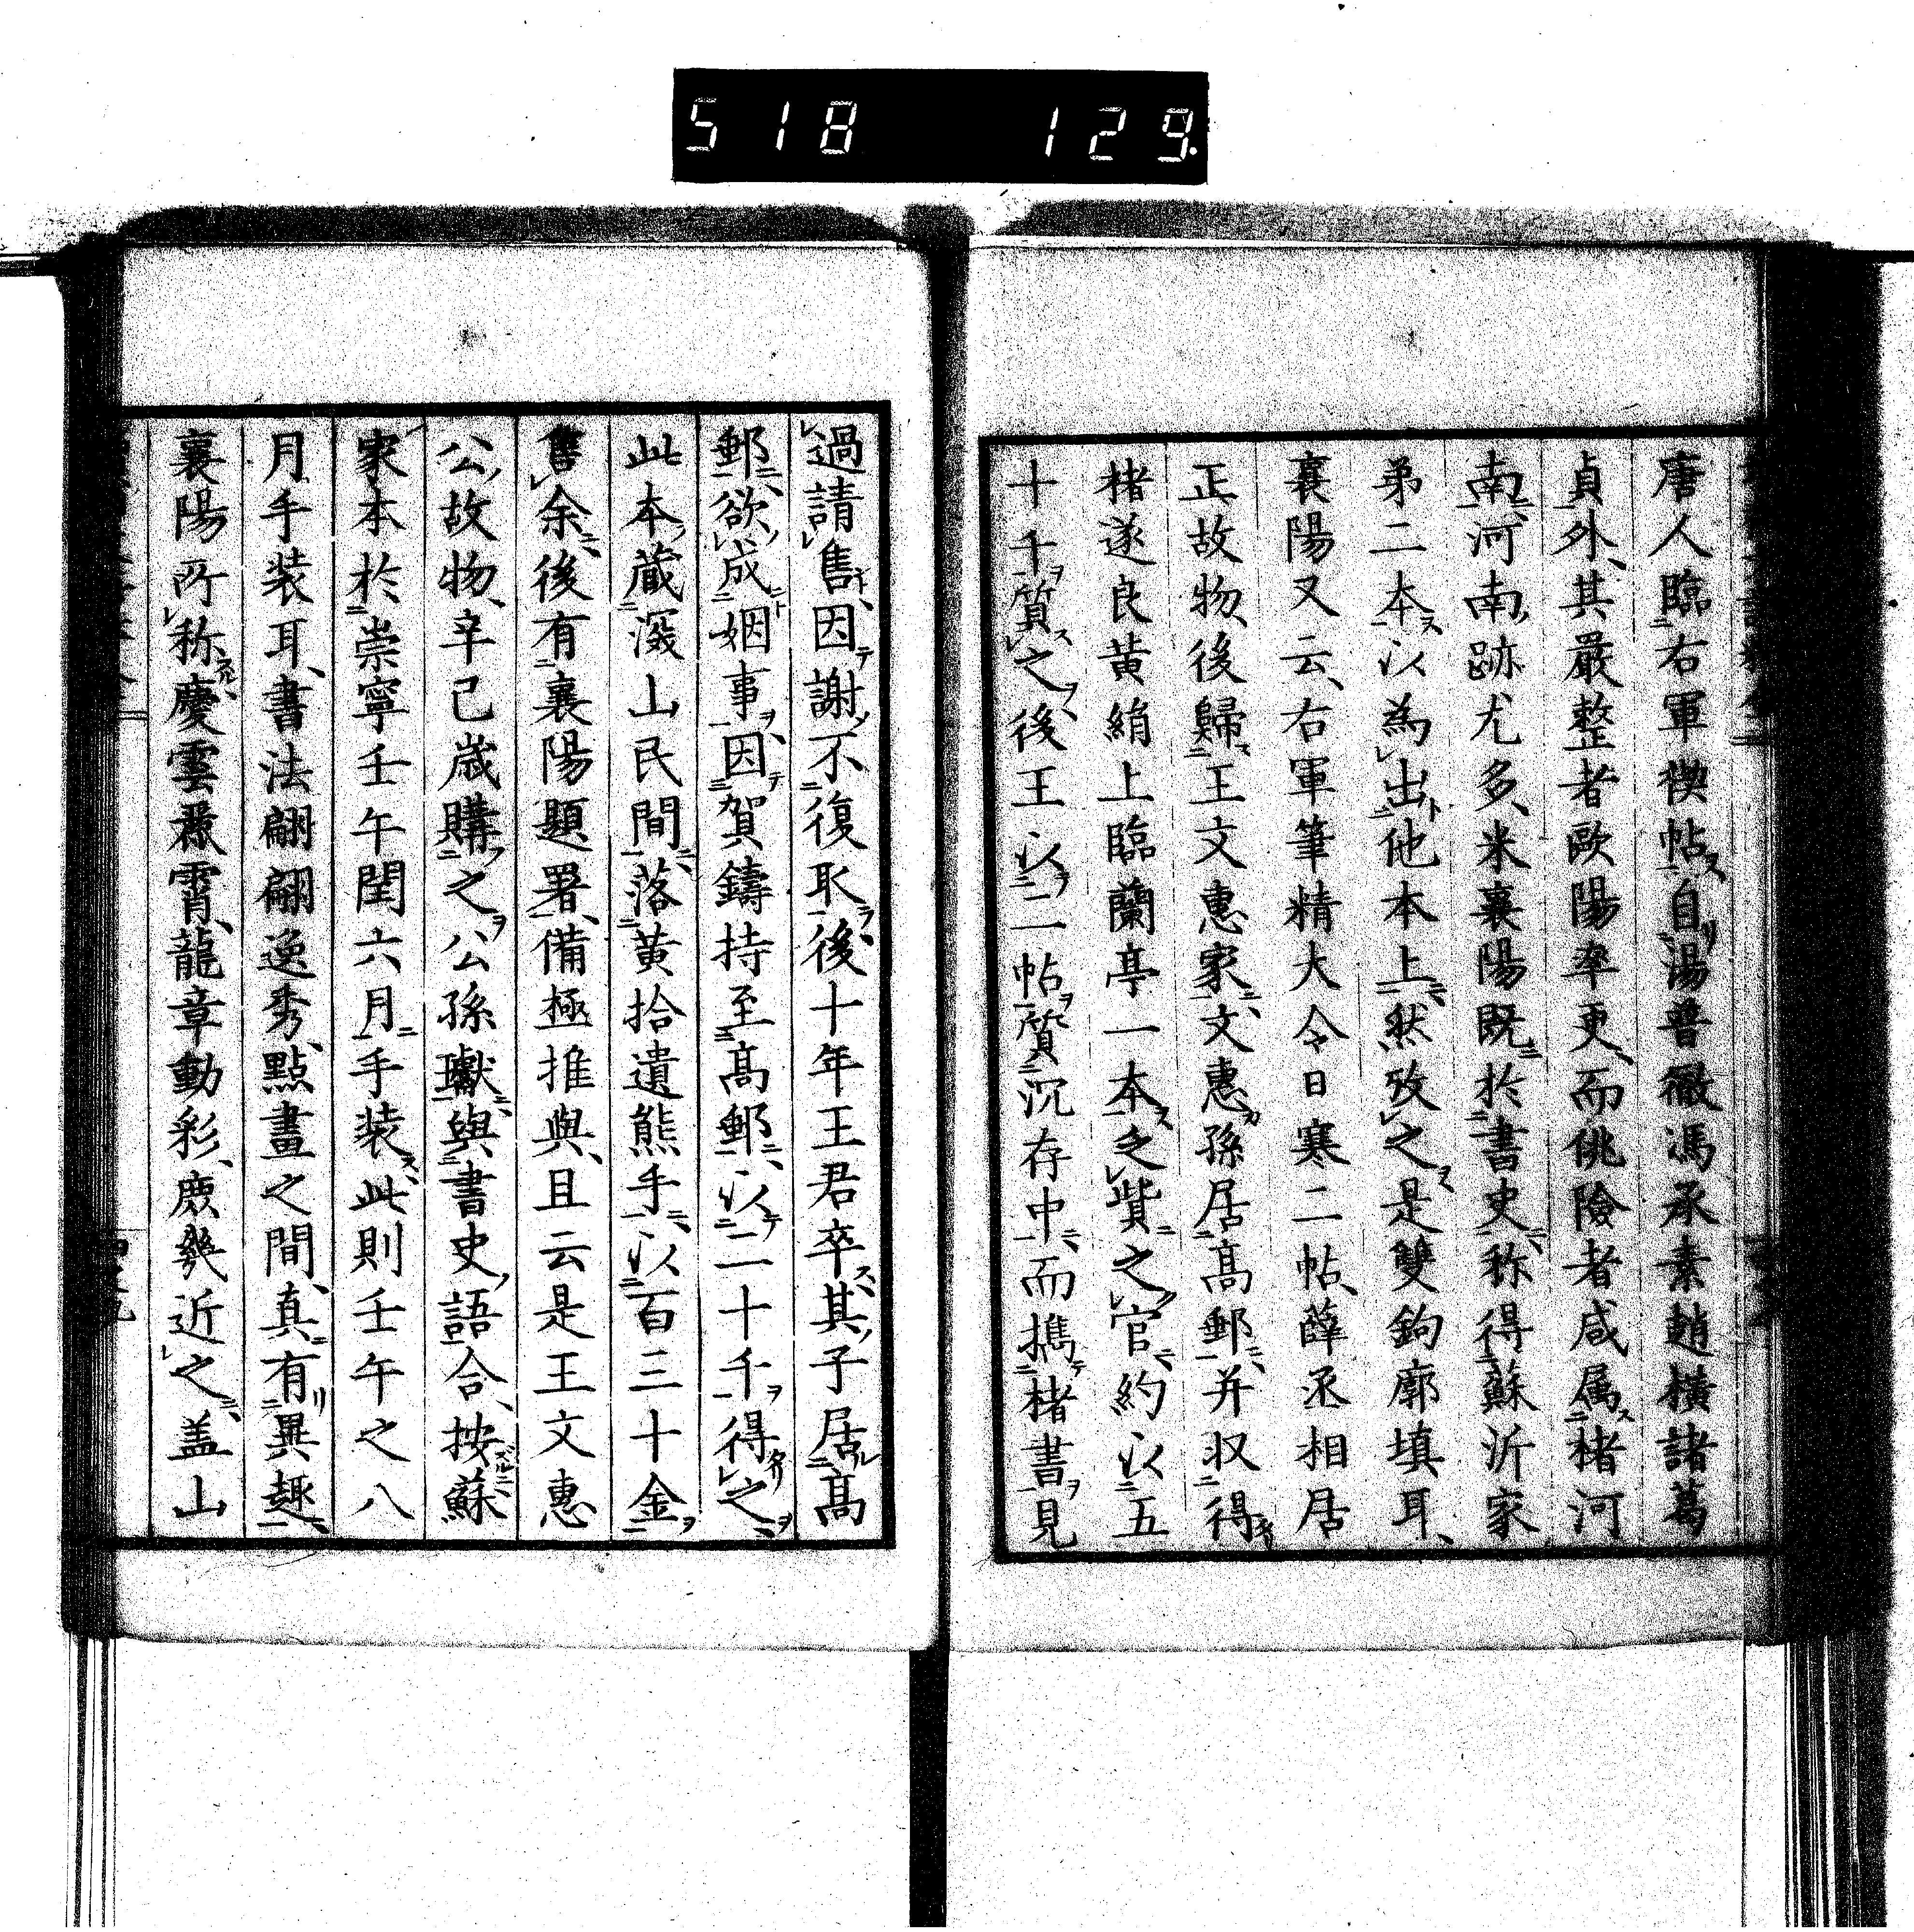 518 129
唐人臨右軍禊帖自湯普徹馮承素趙橫諸葛
貞外其嚴整者歐陽率更而佻險者咸属楮河
南河南跡尤多米襄陽既於書史称得蘇沂家
弟二本以為出他本上然攷之是雙鉤廓填耳
襄陽又云右軍筆精大令日寒二帖薛丞相居
正故物後歸王文惠家文惠孫居高郵并収得
楮遂良黄絹上臨蘭亭一本乏貲之官約以五
十千質之後王以二帖質沉存中而擕楮書見
過請售因謝不復取後十年王君卒其子居高
郵欲成姻事因賀鑄持至高郵以二十千得之
此本蔵深山民間落黄拾遺熊手以百三十金
售余後有襄陽題署備極推與且云是王文惠
公故物辛己歳購之公孫瓛與書史語合按蘇
家本於崇寧壬午閏六月手装此則壬午之八
月手装耳書法翩翩逸秀點畫之間真有異趣
襄陽所称慶雲麗霄龍章動彩庻㡬近之盖山